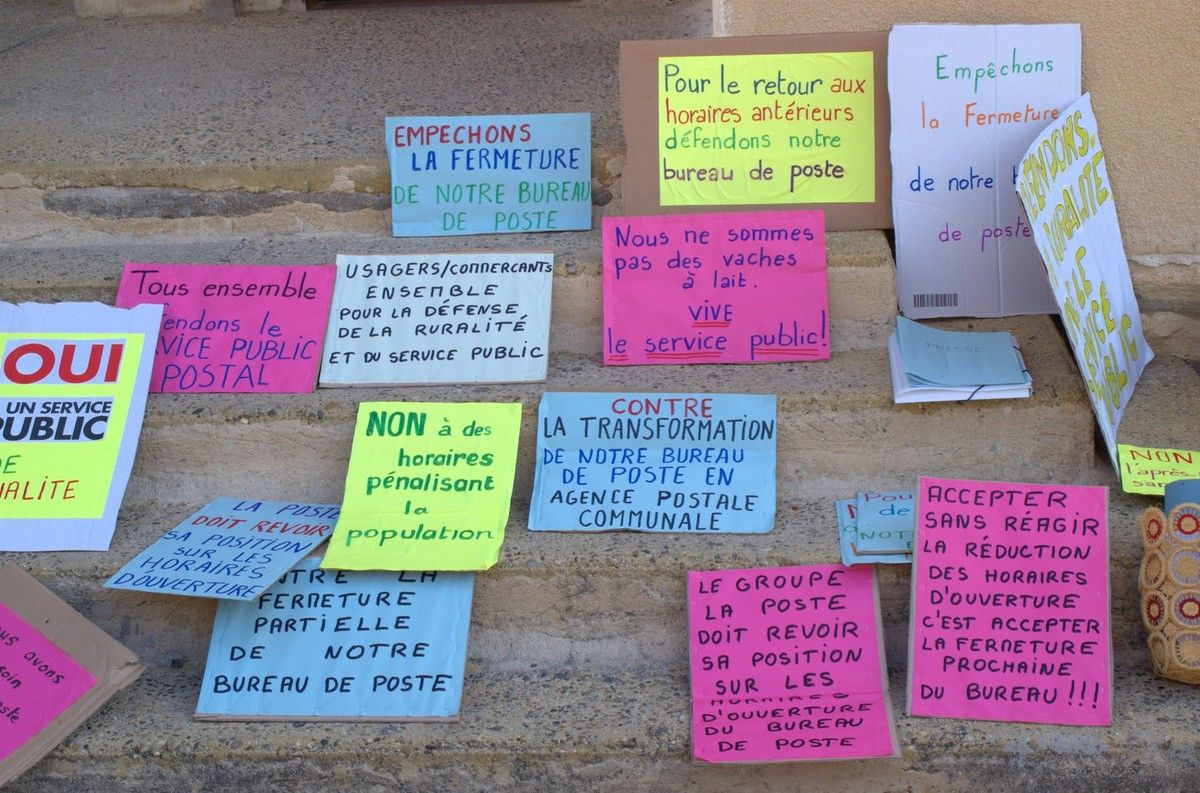 EMPECHONS
LA FERMETURE
DE NOTRE BUREAU
DE POSTE
Pour le retour aux
horaires antérieurs
défendons notre
bureau de poste
Empêchons
la Fermeture
de notre
de poste
RURALITÉ
Tous ensemble
le
SERVICE PUBLIC
POSTAL
USAGERS/COMMERCANTS
ENSEMBLE
POUR LA DÉFENSE
DE LA RURALITÉ
ET DU SERVICE PUBLIC
Nous ne sommes
pas des vaches
à lait.
VIVE
le service public!
PRESSE
OUI
UN SERVICE
PUBLIC
DE
NON à des
horaires
pénalisant
la
population
CONTRE
LA TRANSFORMATION
DE NOTRE BUREAU
DE POSTE EN
AGENCE POSTALE
COMMUNALE
NON
l'après
LA POSTE
DOIT REVOIR
SA POSITION
SUR LES
HORAIRES
D'OUVERTURE
LA
FERMETURE
PARTIELLE
DE NOTRE
BUREAU DE POSTE
Pour
de
NOT
LE GROUPE
LA POSTE
DOIT REVOIR
SA POSITION
SUR LES
HORAIRES
D'OUVERTURE
DU BUREAU
DE POSTE
ACCEPTER
SANS RÉAGIR
LA RÉDUCTION
DES HORAIRES
D'OUVERTURE
C'EST ACCEPTER
LA FERMETURE
PROCHAINE
DU BUREAU !!!
avons